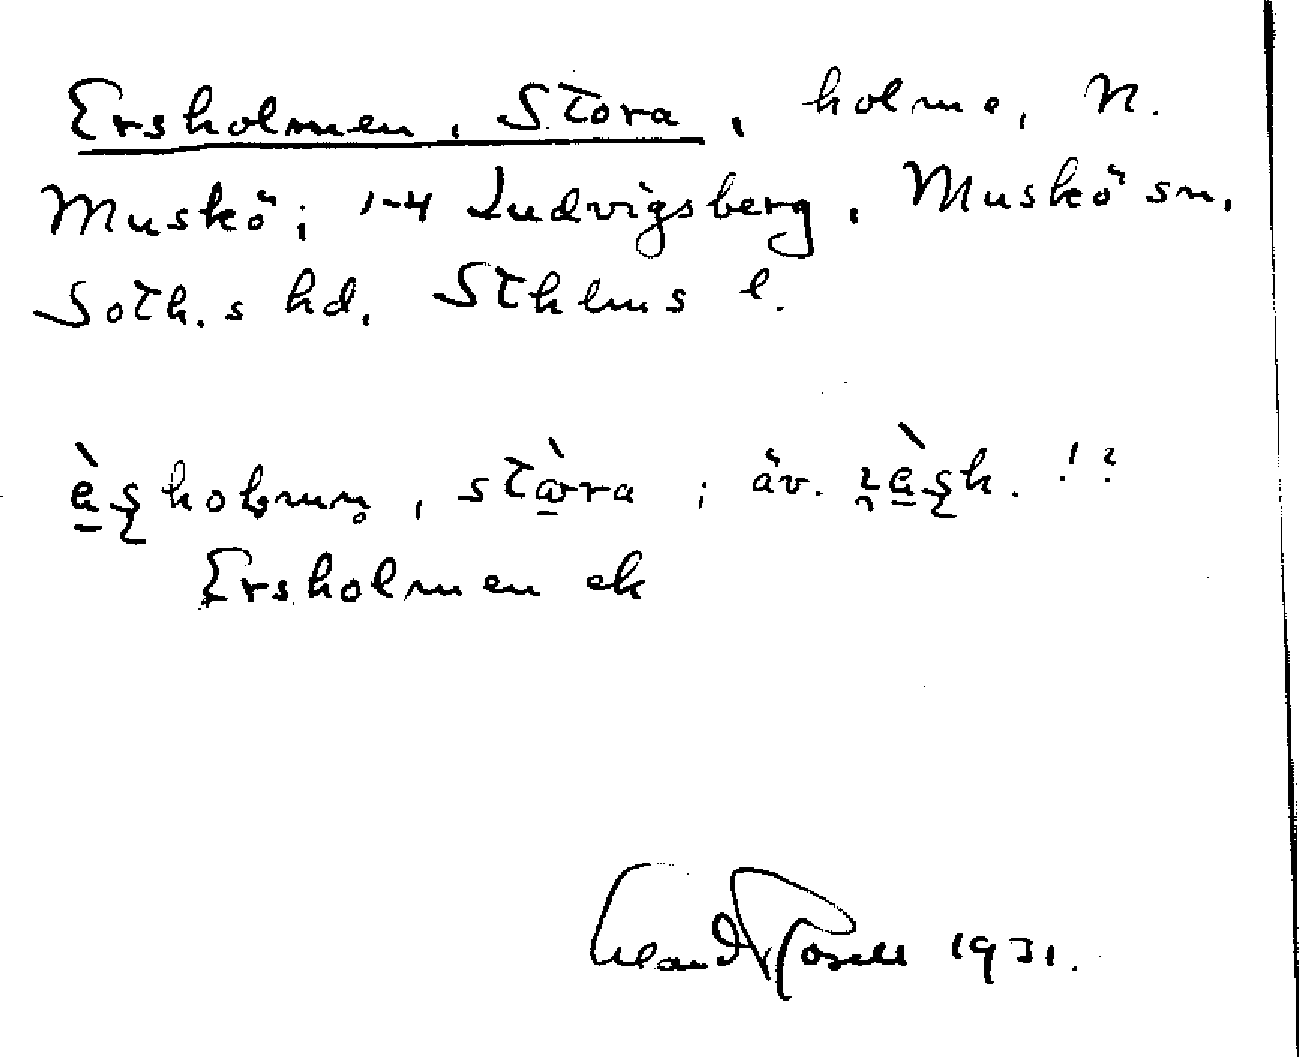 Ersholmen, Stora, holme, N.
Muskö; 1-4 Ludvigsberg, Muskö sn,
Soth.s hd, Sthlms l.
stàra; äv.
Ersholmen ek
1931.